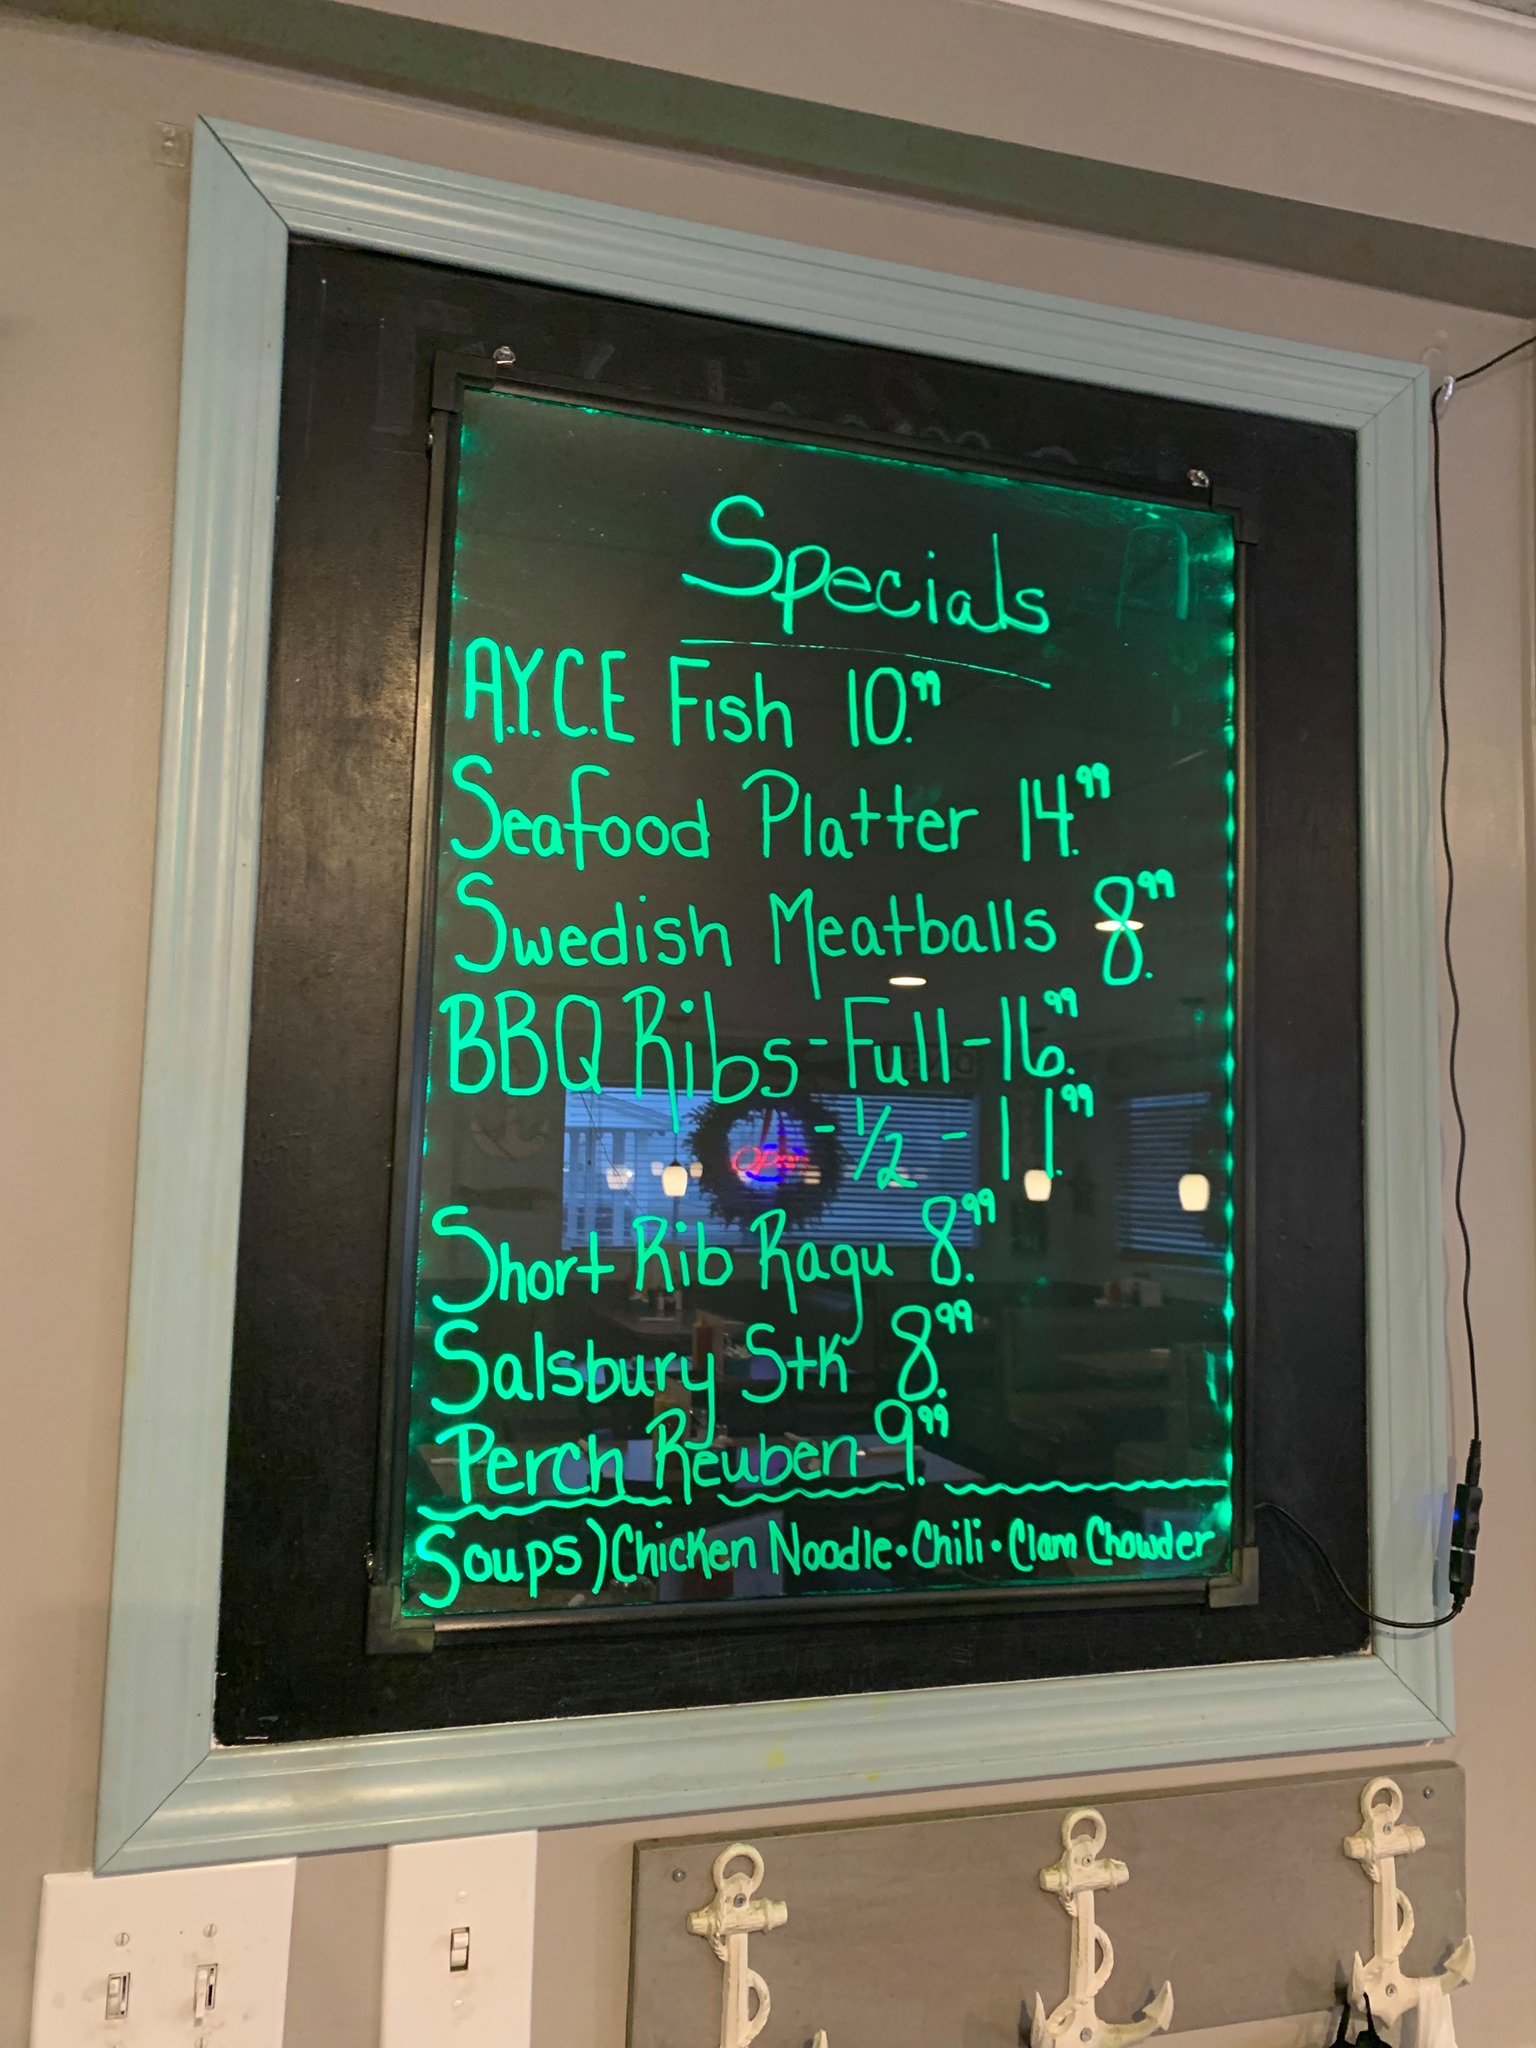 Specials
A.Y.C.E Fish 10.99
Seafood Platter 14.99
Swedish Meatballs 8.99
BBQ Ribs - Full - 16.99
- 1/2 - 11.99
Short Rib Ragu 8.99
Salsbury Stk 8.99
Perch Reuben 9.99
Soups) Chicken Noodle • Chili • Clam Chowder
Open